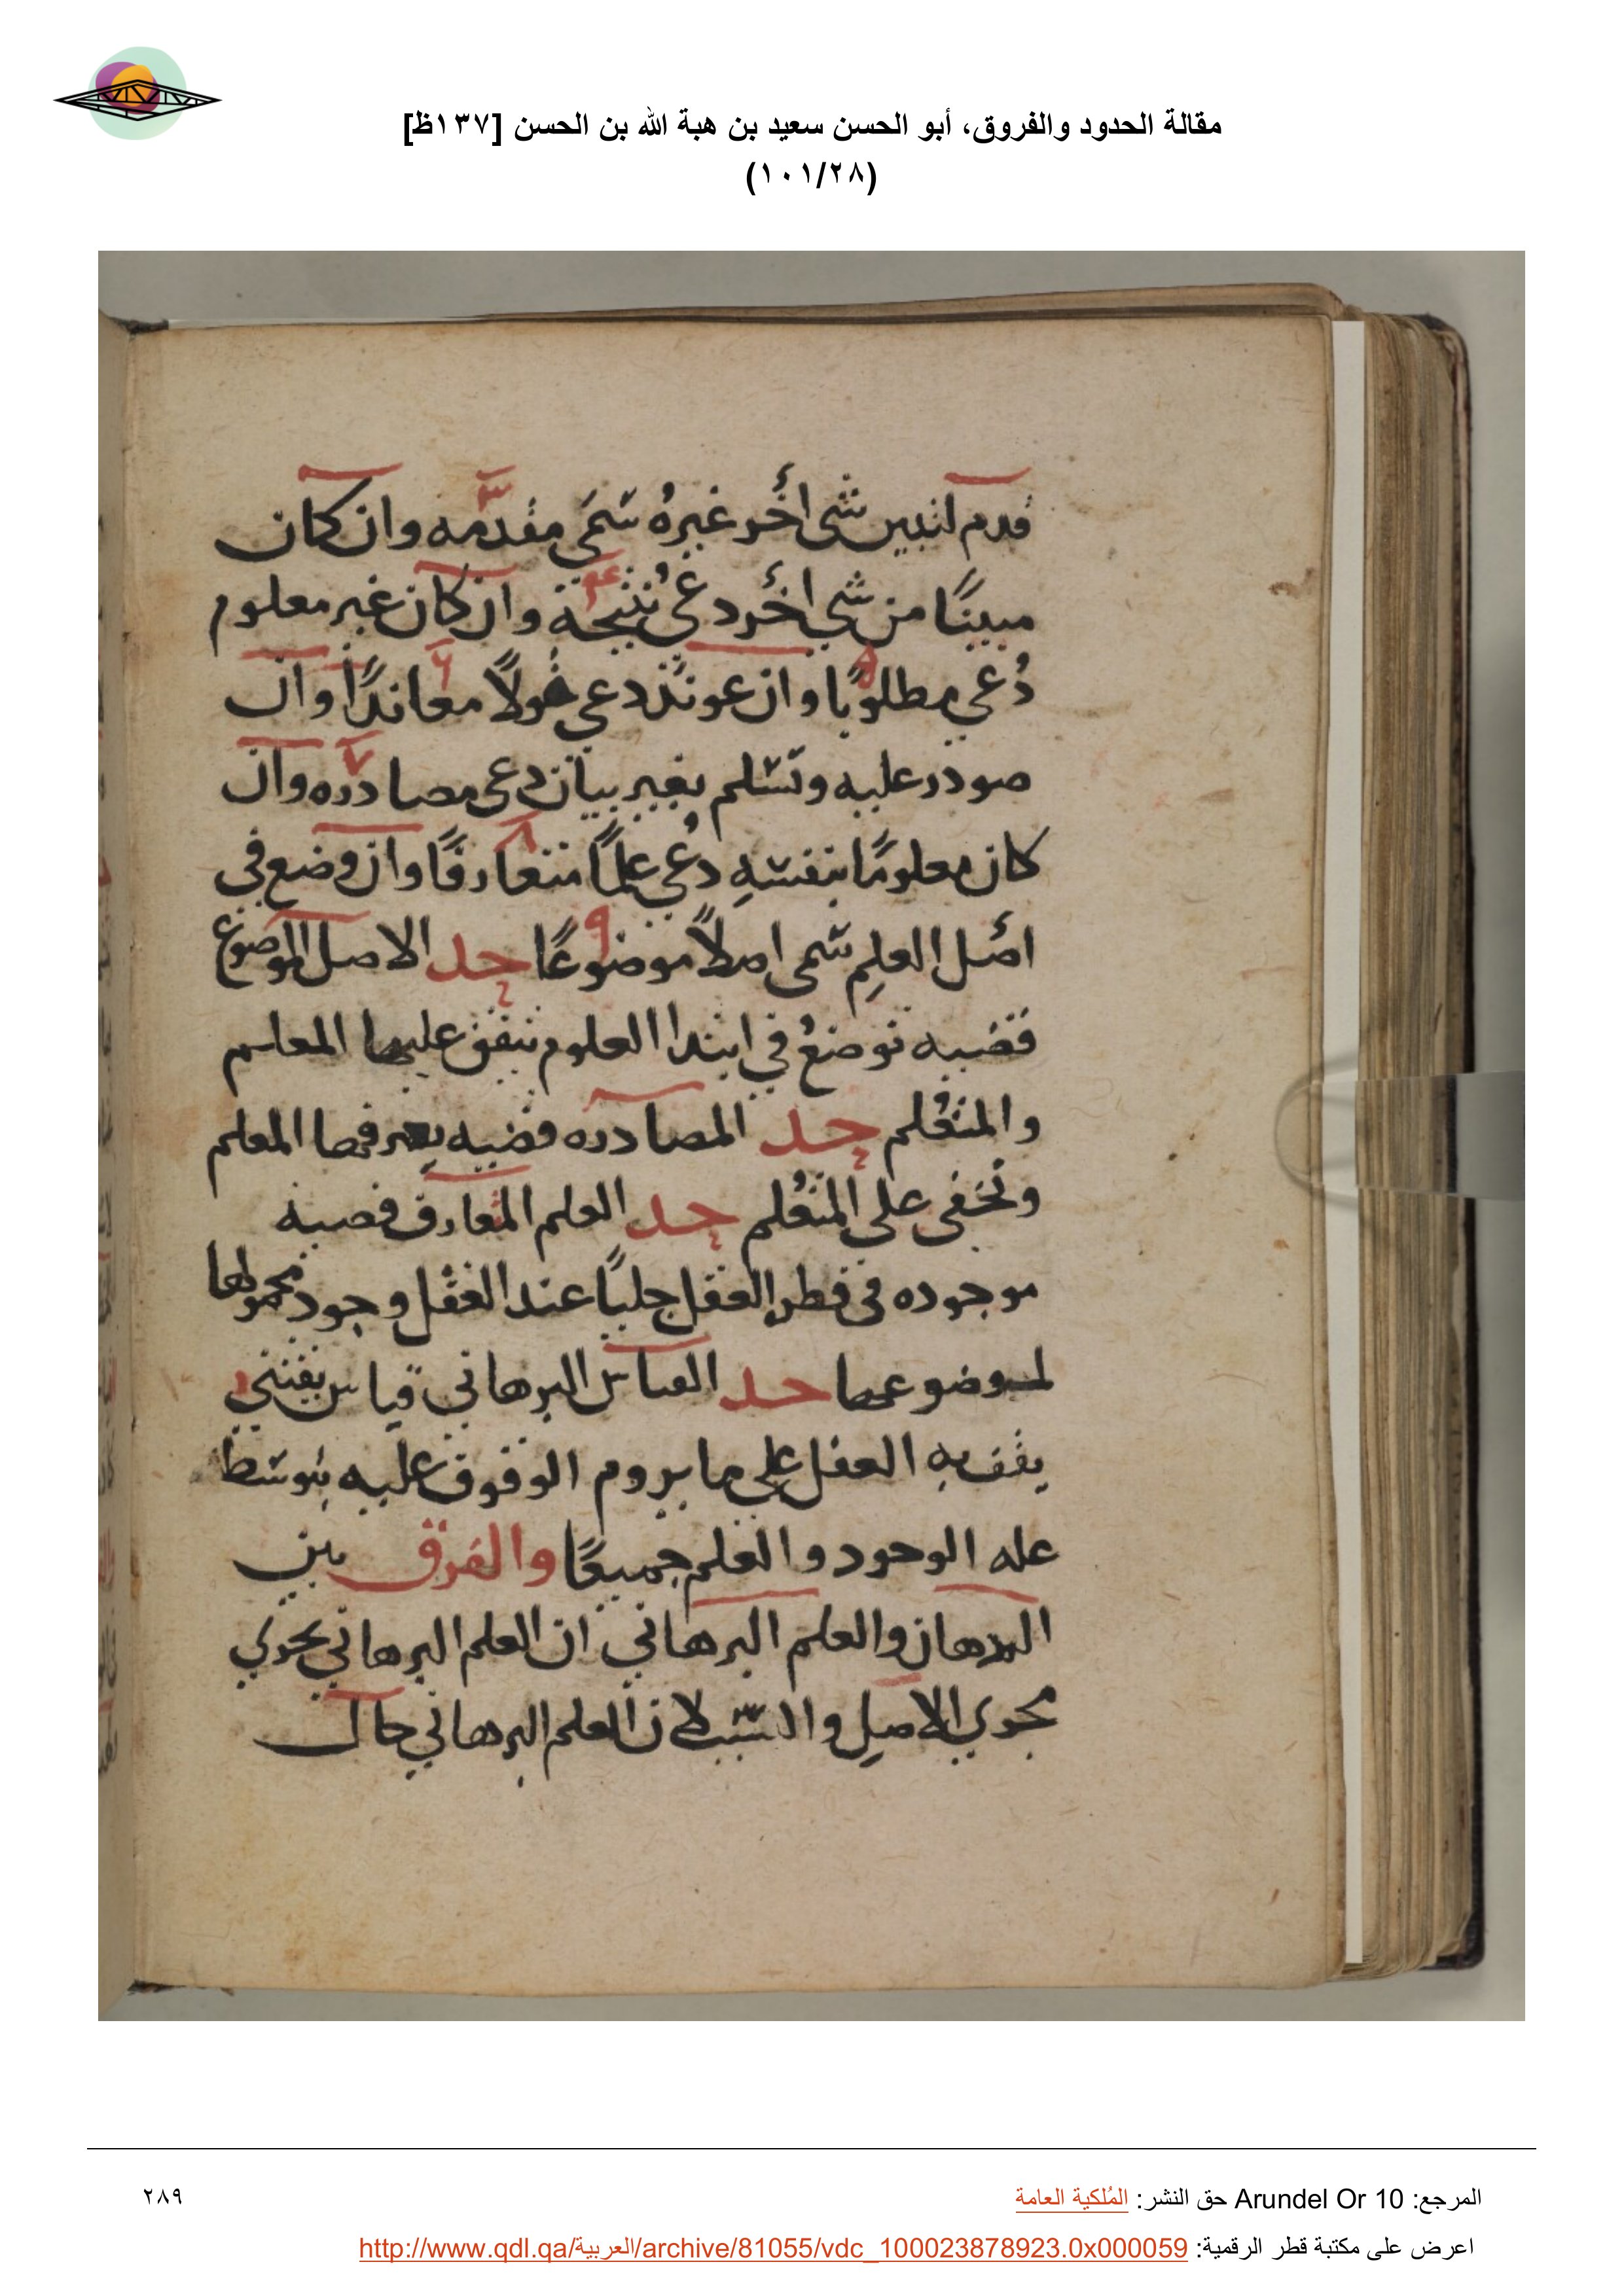 مقالة الحدود والفروق، أبو الحسن سعيد بن هبة الله بن الحسن [١٣٧ظ]
(١٠١/٢٨)
قدم لتبيين شى اخر غيره سمى مقدمه وان كان
مبينًا من شي اخر دعى نتيجة وان كان غير معلوم
دُعي مطلوبًا وان عوند دعى قولاً معاندًا وان
صودر عليه وتسلم بغير بيان دعى مصادره وان
كان معلومًا بنفسهِ دُعى علمًا متعارفًا وان وضع في
اصل العلمِ سمى اصلاً موضوعًا حد الاصل الموضوع
قضيه توضعُ في ابتدا العلوم يتفق عليها المعلم
والمتعلم حد المصادره قضيه يعرفها المعلم
وتخفى على المتعلم حد العلم المتعارف قضيه
موجوده في فطر العقل جليًا عند العقل وجود محمولها
لموضوعها حد القياس البرهاني قياس يقيني
يقف به العقل على ما يروم الوقوف عليه بتوسط
عله الوجود والعلم جميعًا والفرق بين
البرهان والعلم البرهاني ان العلم البرهاني يجري
مجري الاصلِ والسبب لان العلم البرهاني حال
المرجع: Arundel Or 10 حق النشر: المُلكية العامة
٢٨٩
اعرض على مكتبة قطر الرقمية: http://www.qdl.qa/العربية/archive/81055/vdc_100023878923.0x000059